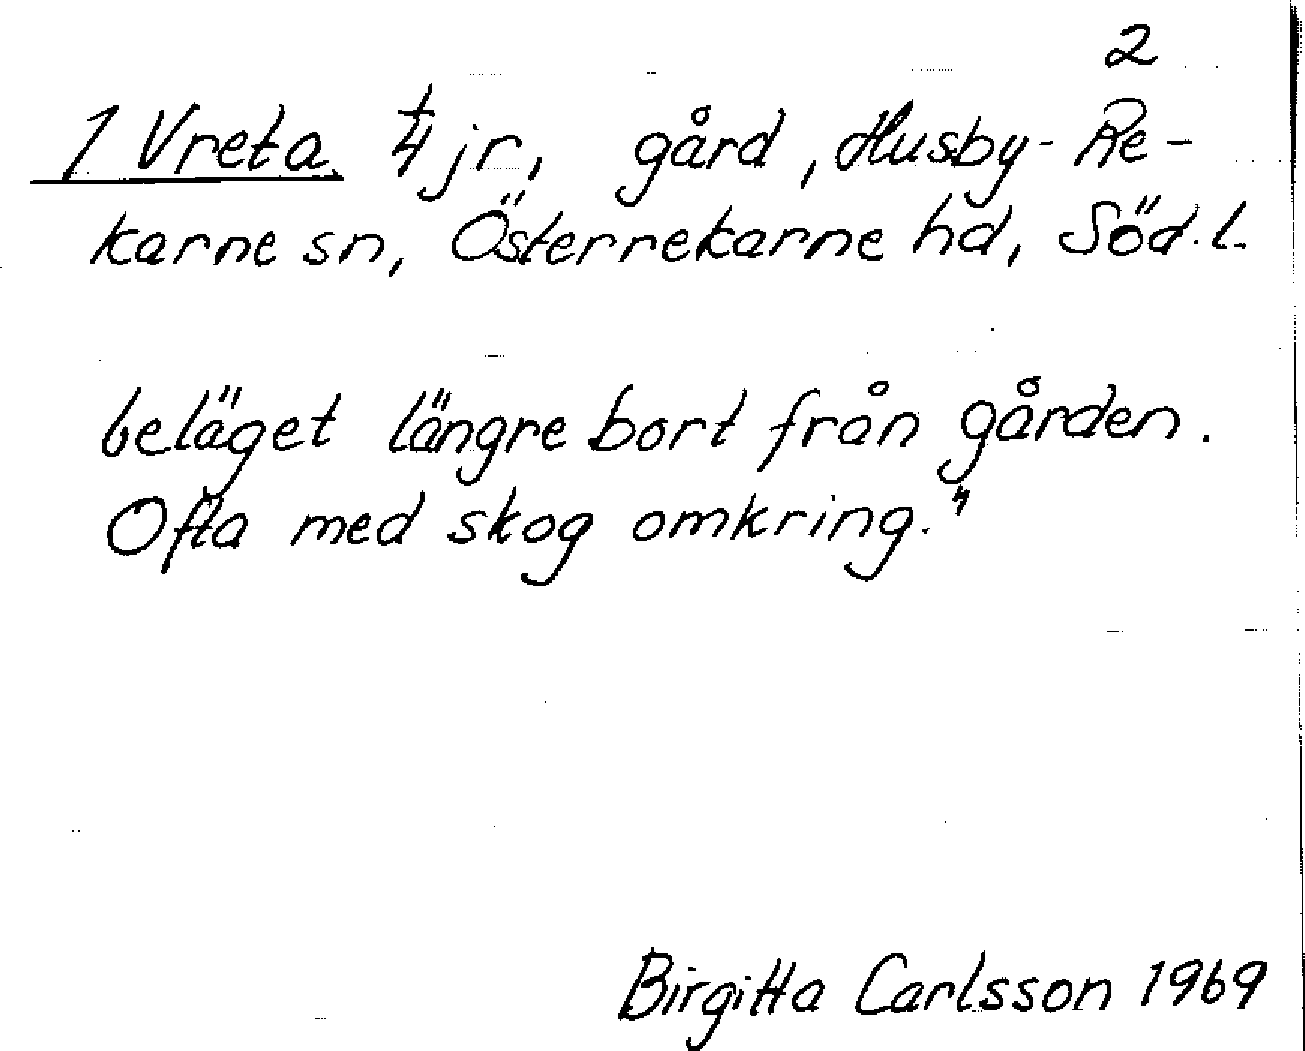 2
1 Vreta 1/4 jr, gård, Husby-Re-
karne sn, Österrekarne hd, Söd.l.
beläget längre bort från gården.
Ofta med skog omkring."
Birgitta Carlsson 1969